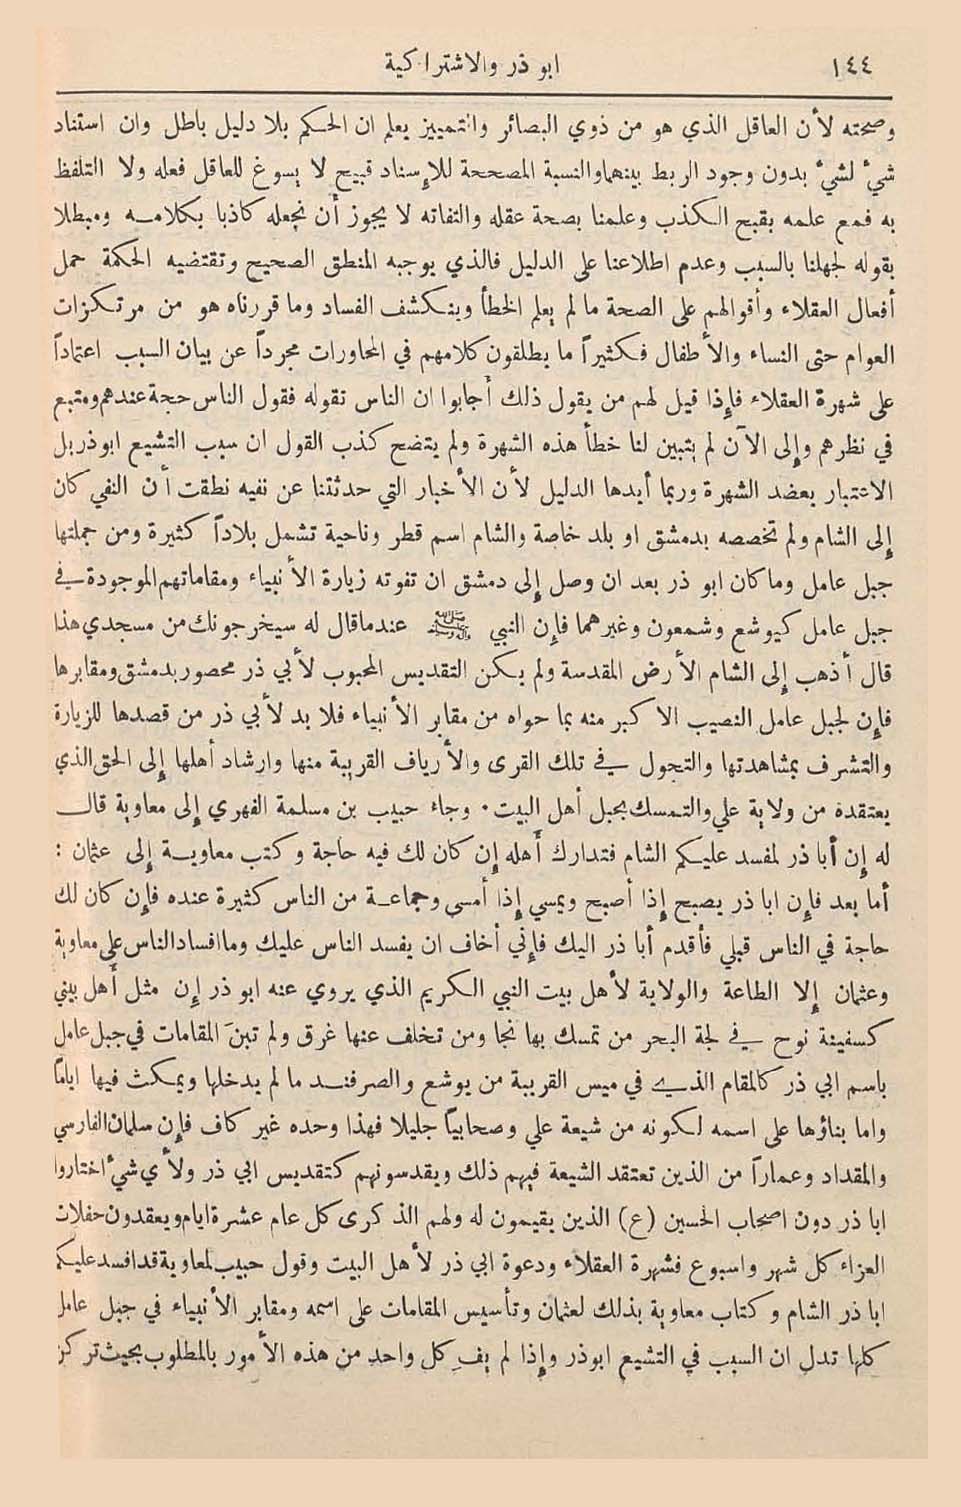 ١٤٤ ابو ذر والاشتراكية
وصحته لأن العاقل الذي هو من ذوي البصائر والتمييز يعلم ان الحكم بلا دليل باطل وان استناد
شيء لشيء بدون وجود الربط بينهما والنسبة المصححة للإسناد قبيح لا يسوغ للعاقل فعله ولا التلفظ
به فمع علمه بقبح الكذب وعلمنا بصحة عقله والتفاته لا يجوز أن نجعله كاذبا بكلامه ومبطلا
بقوله لجهلنا بالسبب وعدم اطلاعنا على الدليل فالذي يوجبه المنطق الصحيح وتقتضيه الحكمة حمل
أفعال العقلاء وأقوالهم على الصحة ما لم يعلم الخطأ وينكشف الفساد وما قررناه هو من مرتكزات
العوام حتى النساء والأطفال فكثيراً ما يطلقون كلامهم في المحاورات مجرداً عن بيان السبب اعتماداً
على شهرة العقلاء فإذا قيل لهم من يقول ذلك أجابوا ان الناس تقوله فقول الناس حجة عندهم ومتبع
في نظرهم وإلى الآن لم يتبين لنا خطأ هذه الشهرة ولم يتضح كذب القول ان سبب التشيع ابو ذر بل
الاعتبار يعضد الشهرة وربما أيدها الدليل لأن الأخبار التي حدثتنا عن نفيه نطقت أن النفي كان
إلى الشام ولم تخصصه بدمشق او بلد خاصة والشام اسم قطر وناحية تشمل بلاداً كثيرة ومن جملتها
جبل عامل وما كان ابو ذر بعد ان وصل إلى دمشق ان تفوته زيارة الأنبياء ومقاماتهم الموجودة في
جبل عامل كيوشع وشمعون وغيرهما فإن النبي ﷺ عندما قال له سيخرجونك من مسجدي هذا
قال أذهب إلى الشام الأرض المقدسة ولم يكن التقديس المحبوب لأبي ذر محصور بدمشق ومقابرها
فإن لجبل عامل النصيب الاكبر منه بما حواه من مقابر الأنبياء فلا بد لأبي ذر من قصدها للزيارة
والتشرف بمشاهدتها والتجول في تلك القرى والأرياف القريبة منها وارشاد أهلها إلى الحق الذي
يعتقده من ولاية علي والتمسك بحبل أهل البيت . وجاء حبيب بن مسلمة الفهري إلى معاوية قال
له إن أبا ذر لمفسد عليكم الشام فتدارك أهله إن كان لك فيه حاجة وكتب معاوية إلى عثمان :
أما بعد فإن ابا ذر يصبح إذا أصبح ويمسي إذا أمسى وجماعة من الناس كثيرة عنده فإن كان لك
حاجة في الناس قبلي فأقدم أبا ذر اليك فإني أخاف ان يفسد الناس عليك وما افساد الناس على معاوية
وعثمان إلا الطاعة والولاية لأهل بيت النبي الكريم الذي يروي عنه ابو ذر إن مثل أهل بيتي
كسفينة نوح في لجة البحر من تمسك بها نجا ومن تخلف عنها غرق ولم تبنَ المقامات في جبل عامل
باسم ابي ذر كالمقام الذي في ميس القريبة من يوشع والصرفند ما لم يدخلها ويمكث فيها اياماً
واما بناؤها على اسمه لكونه من شيعة علي وصحابياً جليلا فهذا وحده غير كاف فإن سلمان الفارسي
والمقداد وعماراً من الذين تعتقد الشيعة فيهم ذلك ويقدسونهم كتقديس ابي ذر ولأي شيء اختاروا
ابا ذر دون اصحاب الحسين (ع) الذين يقيمون له ولهم الذكرى كل عام عشرة ايام ويعقدون حفلات
العزاء كل شهر واسبوع فشهرة العقلاء ودعوة ابي ذر لأهل البيت وقول حبيب لمعاوية قد افسد عليكم
ابا ذر الشام وكتاب معاوية بذلك لعثمان وتأسيس المقامات على اسمه ومقابر الأنبياء في جبل عامل
كلها تدل ان السبب في التشيع ابو ذر وإذا لم يفِ كل واحد من هذه الأمور بالمطلوب بحيث تركن